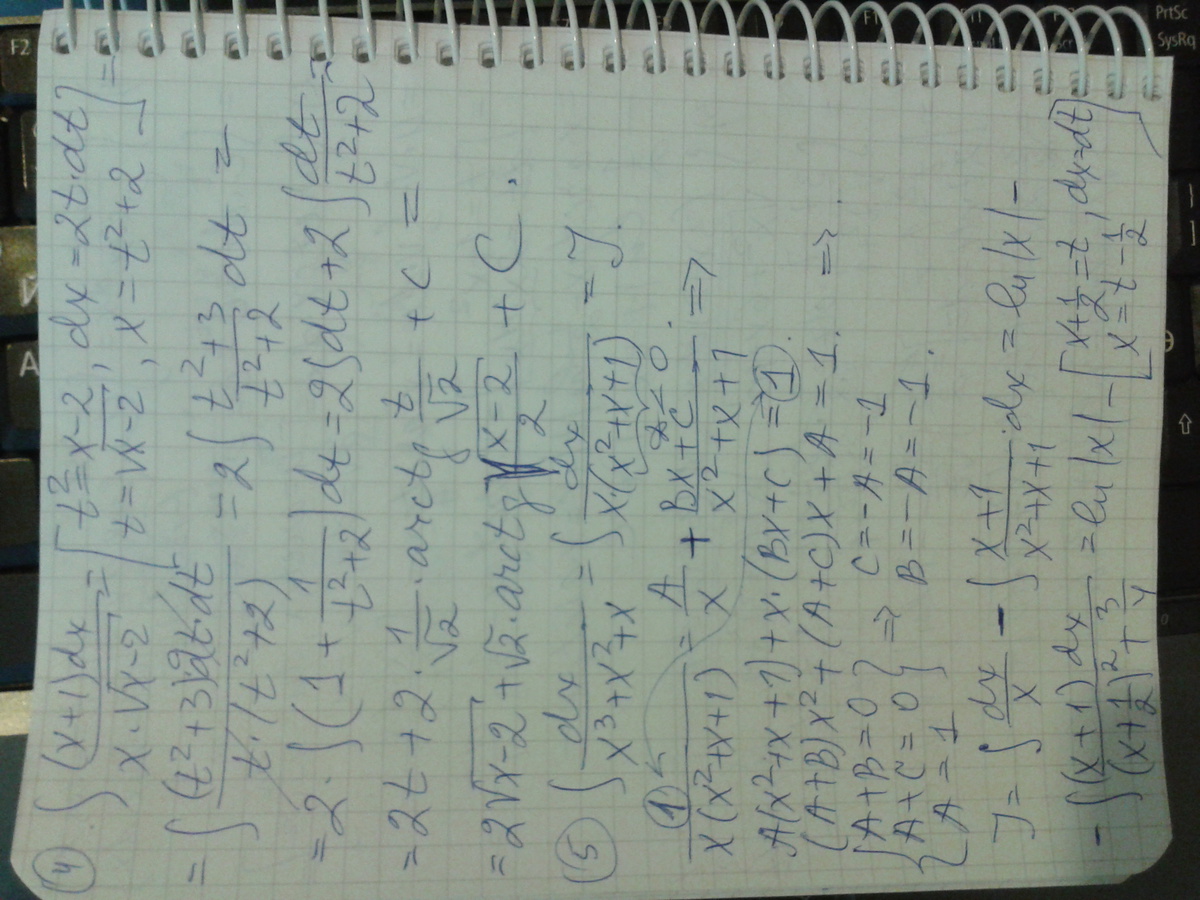 ④ ∫ (x+1)dx / (x·√(x-2)) = [ t²=x-2, dx=2t·dt
t=√(x-2), x=t²+2 ] =
= ∫ (t²+3)·2t·dt / (t·(t²+2)) = 2∫ (t²+3)/(t²+2) dt =
= 2·∫(1 + 1/(t²+2))dt = 2∫dt + 2∫ dt/(t²+2) =
= 2t + 2·1/√2·arctg t/√2 + C =
= 2√(x-2) + √2·arctg √((x-2)/2) + C.
⑤ ∫ dx/(x³+x²+x) = ∫ dx/(x·(x²+x+1)) = J.
D<0.
① 1/(x(x²+x+1)) = A/x + (Bx+C)/(x²+x+1) ⇒
A(x²+x+1)+x·(Bx+C) = ①
(A+B)x²+(A+C)x+A=1. ⇒
{ A+B=0
A+C=0 } ⇒ C=-A=-1
A=1 B=-A=-1.
J = ∫ dx/x - ∫ (x+1)/(x²+x+1)·dx = ln|x| -
- ∫ (x+1)dx/((x+1/2)²+3/4) = ln|x| - [ x+1/2=t, dx=dt
x=t-1/2 ]
F2
A
Й
PrtSc
SysRq